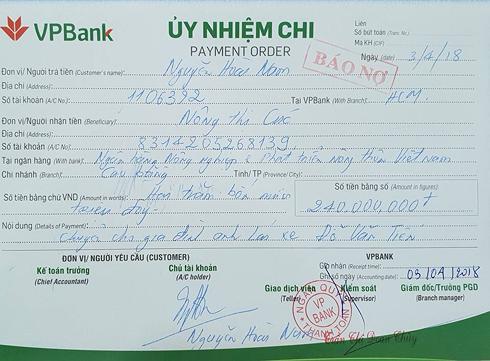 VPBank
ỦY NHIỆM CHI
PAYMENT ORDER
Liên
Số bút toán (Trans. No.)
Mã KH (CIF)
Ngày (date) 3/4/18
BÁO NỢ
Đơn vị/Người trả tiền (Customer's name) Nguyễn Hoài Nam
Địa chỉ (Address)
Số tài khoản (A/C No.) 1106392 Tại VPBank (With Branch) HCM
Đơn vị/Người nhận tiền (Beneficiary) Nông thị Cúc
Địa chỉ (Address)
Số tài khoản (A/C No.) 8314205268139
Tại ngân hàng (With bank) Ngân hàng Nông nghiệp & Phát triển nông thôn Việt nam
Chi nhánh (Branch) Tỉnh/TP (Province/City)
Số tiền bằng chữ VND (Amount in words) Hai trăm bốn mươi
triệu đồng
Số tiền bằng số (Amount in figures)
240,000,000đ
Nội dung (Details of Payment)
Chuyển cho gia đình anh lái xe Đỗ Văn Tiến
ĐƠN VỊ/NGƯỜI YÊU CẦU (CUSTOMER) VPBANK
Kế toán trưởng Chủ tài khoản
(Chief Accountant) (A/C holder)
Giờ nhận (Receipt time)
Ghi sổ ngày (Accounting date) 03/04/2018
Giao dịch viên Kiểm soát Giám đốc/Trưởng PGD
(Teller) (Supervisor) (Branch manager)
NGÂN QUỸ
VP
BANK
THANH TOÁN
Nguyễn Hoài Nam